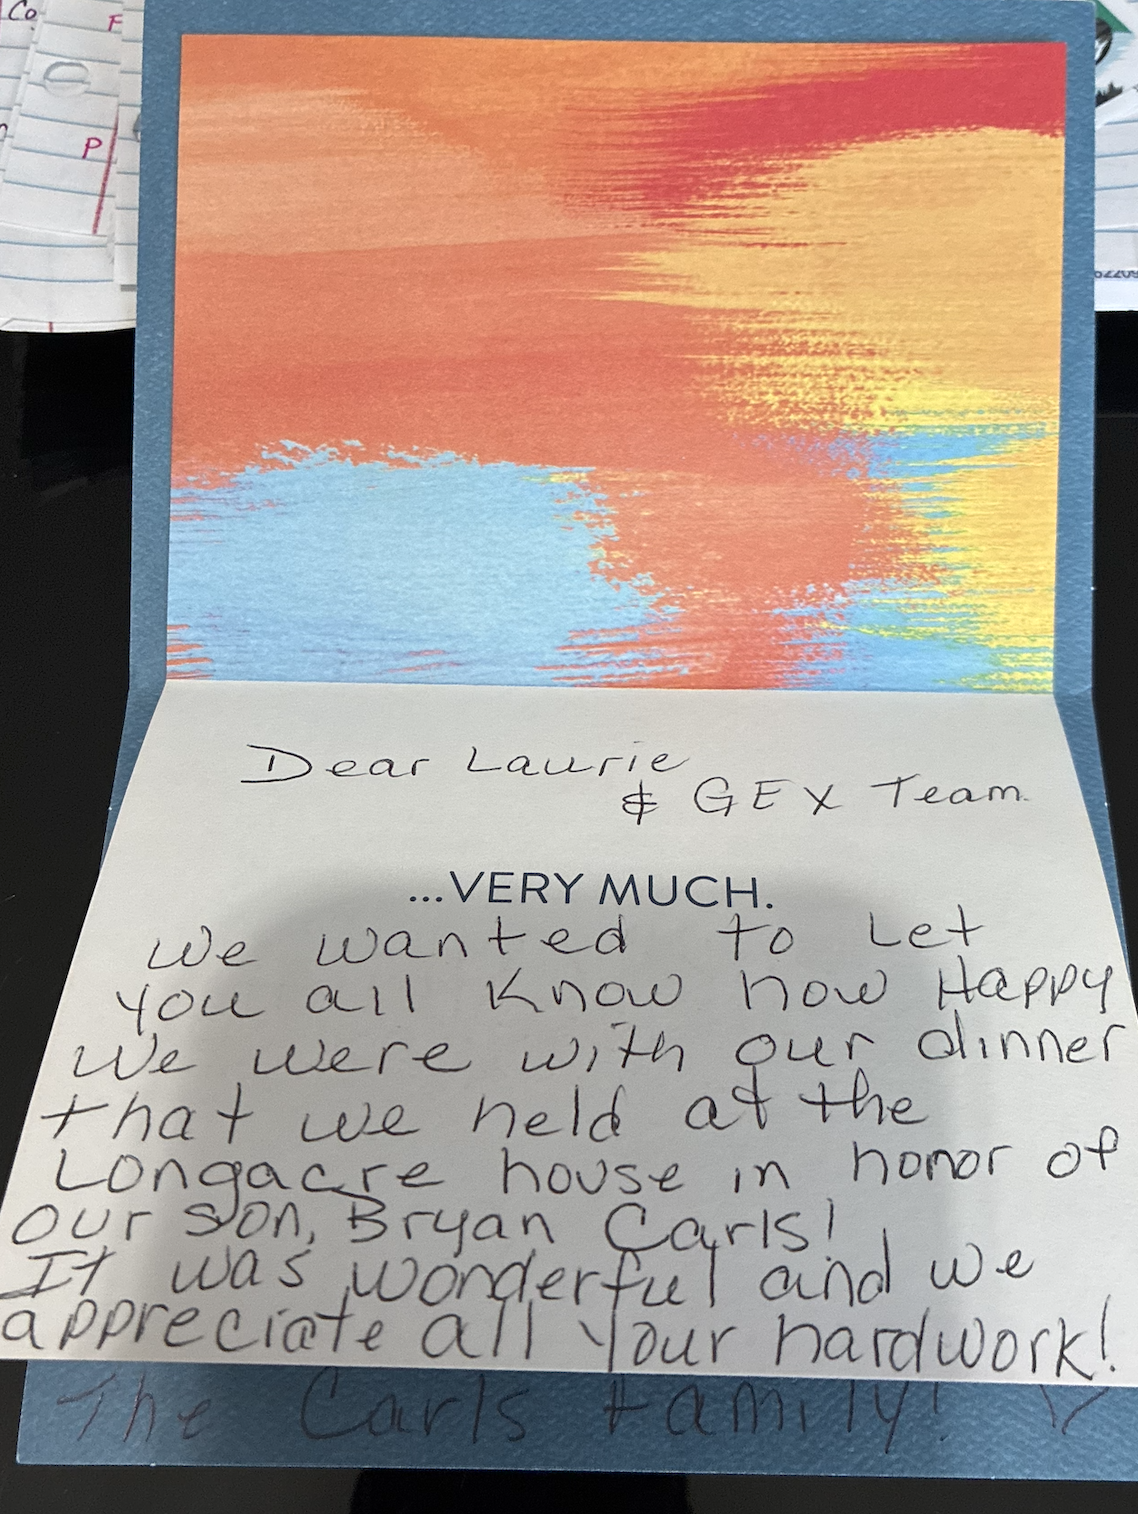 Co.
F
P
62209
Dear Laurie
& GEX Team.
...VERY MUCH.
We wanted to Let
you all know how Happy
we were with our dinner
that we held at the
Longacre house in honor of
our son, Bryan Carls!
It was wonderful and we
appreciate all your hardwork!
The Carls Family!